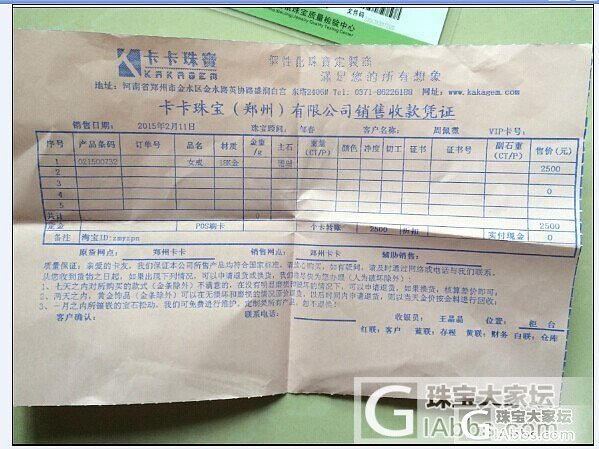 珠宝质量检验中心
卡卡珠寶
KAKAGEM
個性化珠寶定製商
滿足您的所有想象
地址：河南省郑州市金水区金水路英协路盛润白宫 东塔2406室 Tel：0371-86226188 网址：www.kakagem.com
卡卡珠宝（郑州）有限公司销售收款凭证
销售日期： 2015年2月11日 珠宝顾问： 邹春 客户名称： 周佩薇 VIP卡号：
序号 产品条码 订单号 品名 材质 金重/g 主石 重量(CT/P) 颜色 净度 切工 证书 证书号 副石重(CT/P) 售价(元)
1 021500732 女戒 18K金 2500
2 0
3 0
4
5 0
共计 0 2500
定金 POS刷卡 个卡转账 2500 折扣
备注 淘宝ID:zmyzpn 实付现金 0
原货网点： 郑州卡卡 销售网点： 郑州卡卡 辅助销售：
质量保证：亲爱的卡友，我们保证本公司所售产品均符合国家标准，请放心购买，如有疑问，请及时通过网络或电话与我们联系。
从您收到货物之日起，如果出现下列情况，可以申请退货或换货，我们将尽快为您办理（人为破坏除外）：
1、七天之内对所购买的款式（金条除外）不满意的，在没有明显磨损和损坏的情况下，可以申请退货，如果换货，核算差价即可；
2、两天之内，黄金饰品（金条除外）可以在无损坏和磨损的情况原价退货，以后时间内申请退货，则以当天金价按金料进行回收；
3、一月之内所镶嵌的宝石松动，我们可免费进行维护，定制类所有产品，恕不退换！
客户确认： 联系电话： 收银员： 王晶晶 位置： 柜台
红联：客户 蓝联：存根 黄联：财务 白联：仓库
珠宝大家坛
GIAbbs.com
珠宝大家坛
GIAbbs.com